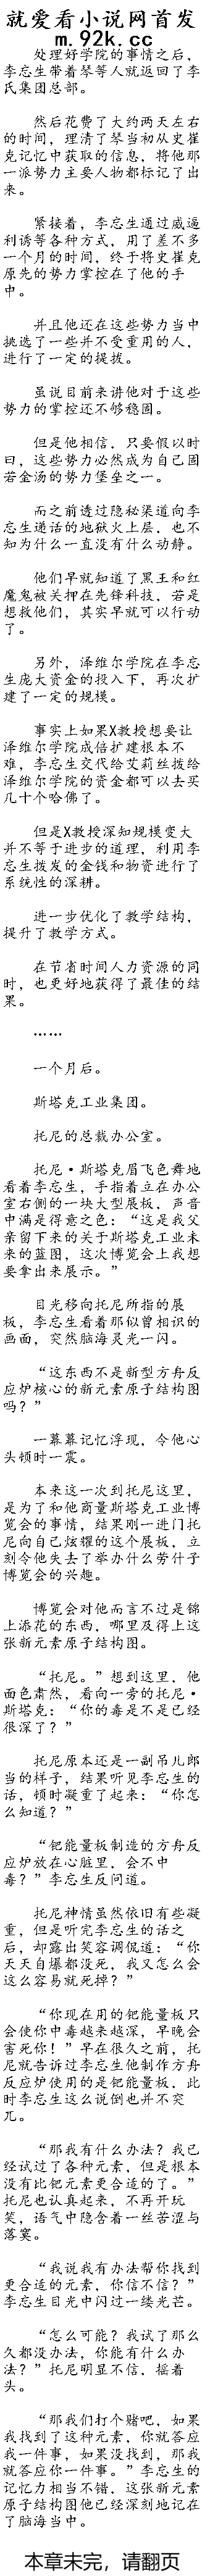 就爱看小说网首发
m.92k.cc
处理好学院的事情之后，
李忘生带着琴等人就返回了李
氏集团总部。
然后花费了大约两天左右
的时间，理清了琴当初从史崔
克记忆中获取的信息，将他那
一派势力主要人物都标记了出
来。
紧接着，李忘生通过威逼
利诱等各种方式，用了差不多
一个月的时间，终于将史崔克
原先的势力掌控在了他的手
中。
并且他还在这些势力当中
挑选了一些并不受重用的人，
进行了一定的提拔。
虽说目前来讲他对于这些
势力的掌控还不够稳固。
但是他相信，只要假以时
日，这些势力必然成为自己固
若金汤的势力堡垒之一。
而之前透过隐秘渠道向李
忘生递话的地狱火上层，也不
知为什么一直没有什么动静。
他们早就知道了黑王和红
魔鬼被关押在先锋科技，若是
想救他们，其实早就可以行动
了。
另外，泽维尔学院在李忘
生庞大资金的投入下，再次扩
建了一定的规模。
事实上如果X教授想要让
泽维尔学院成倍扩建根本不
难，李忘生交代给艾莉丝拨给
泽维尔学院的资金都可以去买
几十个哈佛了。
但是X教授深知规模变大
并不等于进步的道理，利用李
忘生拨发的金钱和物资进行了
系统性的深耕。
进一步优化了教学结构，
提升了教学方式。
在节省时间人力资源的同
时，也更好地获得了最佳的结
果。
……
一个月后。
斯塔克工业集团。
托尼的总裁办公室。
托尼·斯塔克眉飞色舞地
看着李忘生，手指着立在办公
室右侧的一块大型展板，声音
中满是得意之色：“这是我父
亲留下来的关于斯塔克工业未
来的蓝图，这次博览会上我想
要拿出来展示。”
目光移向托尼所指的展
板，李忘生看着那似曾相识的
画面，突然脑海灵光一闪。
“这东西不是新型方舟反
应炉核心的新元素原子结构图
吗？”
一幕幕记忆浮现，令他心
头顿时一震。
本来这一次到托尼这里，
是为了和他商量斯塔克工业博
览会的事情，结果刚一进门托
尼向自己炫耀的这个展板，立
刻令他失去了举办什么劳什子
博览会的兴趣。
博览会对他而言不过是锦
上添花的东西，哪里及得上这
张新元素原子结构图。
“托尼。”想到这里，他
面色肃然，看向一旁的托尼·
斯塔克：“你的毒是不是已经
很深了？”
托尼原本还是一副吊儿郎
当的样子，结果听见李忘生的
话，顿时凝重了起来：“你怎
么知道？”
“钯能量板制造的方舟反
应炉放在心脏里，会不中
毒？”李忘生反问道。
托尼神情虽然依旧有些凝
重，但是听完李忘生的话之
后，却露出笑容调侃道：“你
天天自爆都没死，我又怎么会
这么容易就死掉？”
“你现在用的钯能量板只
会使你中毒越来越深，早晚会
害死你！”早在很久之前，托
尼就告诉过李忘生他制作方舟
反应炉使用的是钯能量板，此
时李忘生这么说倒也并不突
兀。
“那我有什么办法？我已
经试过了各种元素，但是根本
没有比钯元素更合适的了。”
托尼也认真起来，不再开玩
笑，语气中隐含着一丝苦涩与
落寞。
“我说我有办法帮你找到
更合适的元素，你信不信？”
李忘生目光中闪过一缕光芒。
“怎么可能？我试了那么
久都没办法，你能有什么办
法？”托尼明显不信，摇着
头。
“那我们打个赌吧，如果
我找到了这种元素，你就答应
我一件事，如果没找到，那我
就答应你一件事。”李忘生的
记忆力相当不错，这张新元素
原子结构图他已经深刻地记在
了脑海当中。
本章未完，请翻页